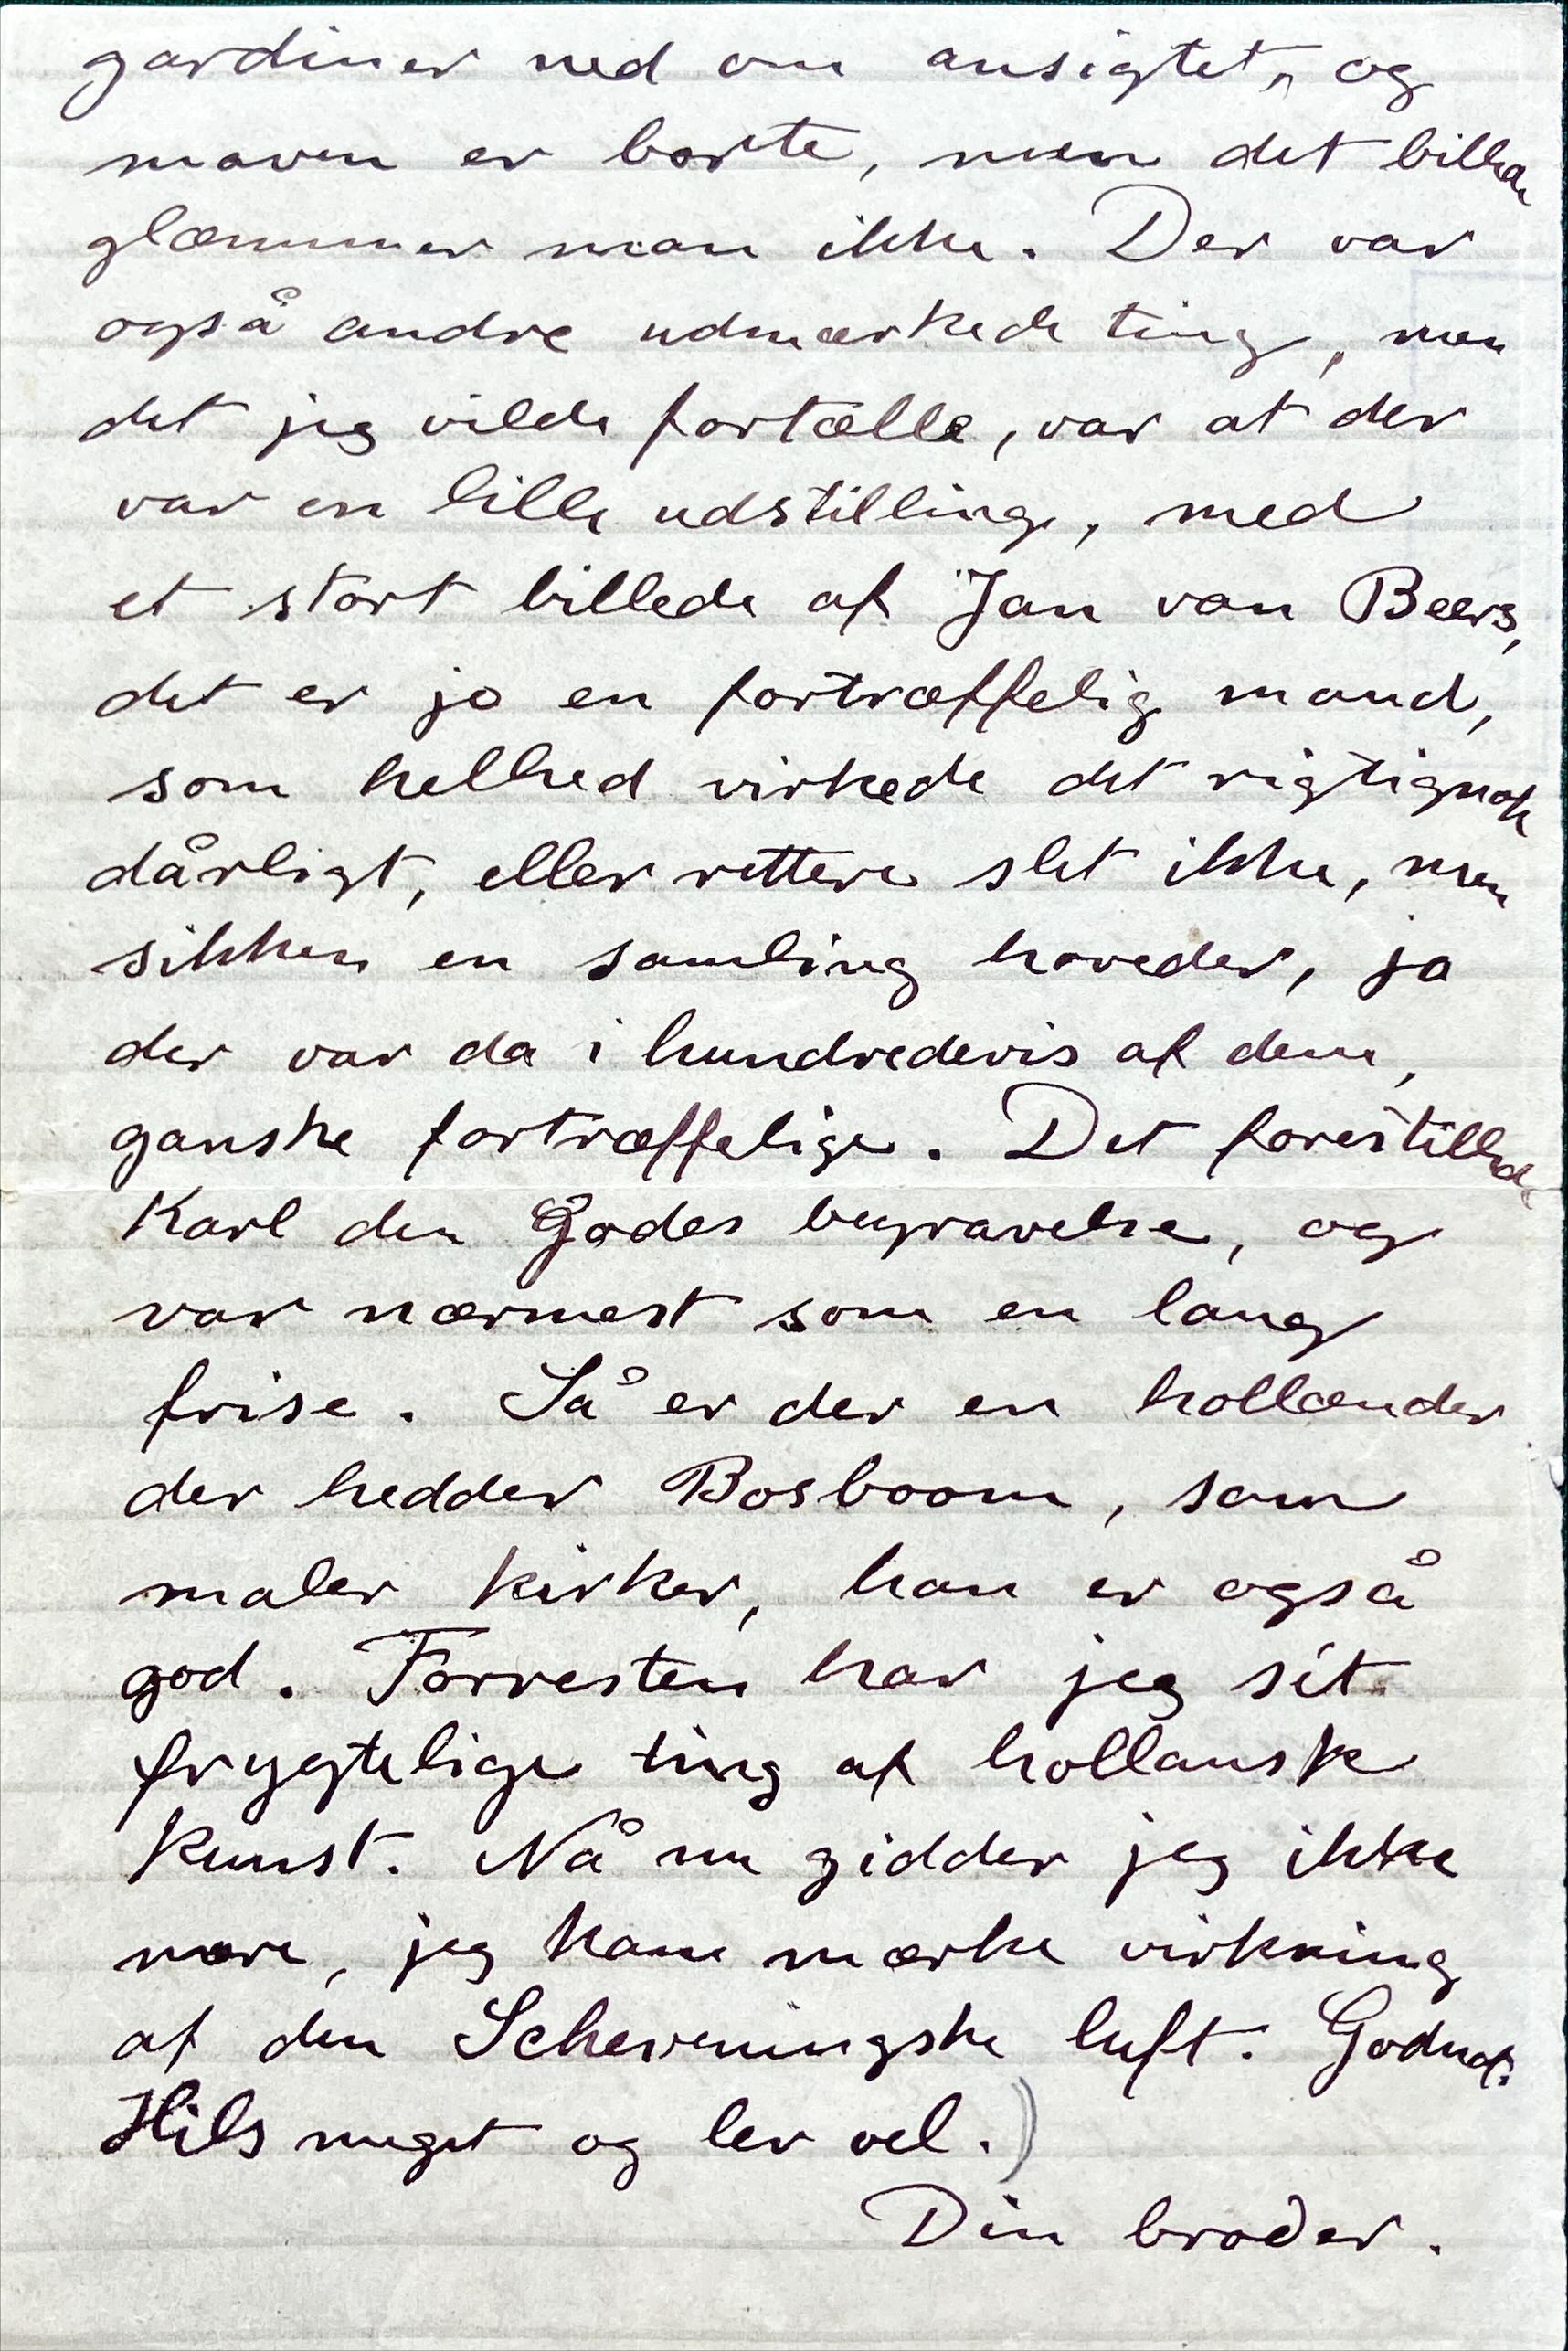 gardiner ned om ansigtet, og
maven er borte, men det billede
glæmmer man ikke. Der var
også andre udmærkede ting, men
det jeg vilde fortælle, var at der
var en lille udstilling, med
et stort billede af Jan van Beers,
det er jo en fortræffelig mand,
som helhed virkede det rigtignok
dårligt, eller rettere slet ikke, men
sikken en samling hoveder, ja
der var da i hundredevis af dem,
ganske fortræffelige. Det forestillede
Karl den Godes begravelse, og
var nærmest som en lang
frise. Så er der en hollænder
der hedder Bosboom, som
maler kirker, han er også
god. Forresten har jeg sét
frygtelige ting af hollansk
kunst. Nå nu gidder jeg ikke
mere, jeg kan mærke virkning
af den Scheveningske luft. Godnat.
Hils meget og lev vel.)
Din broder.